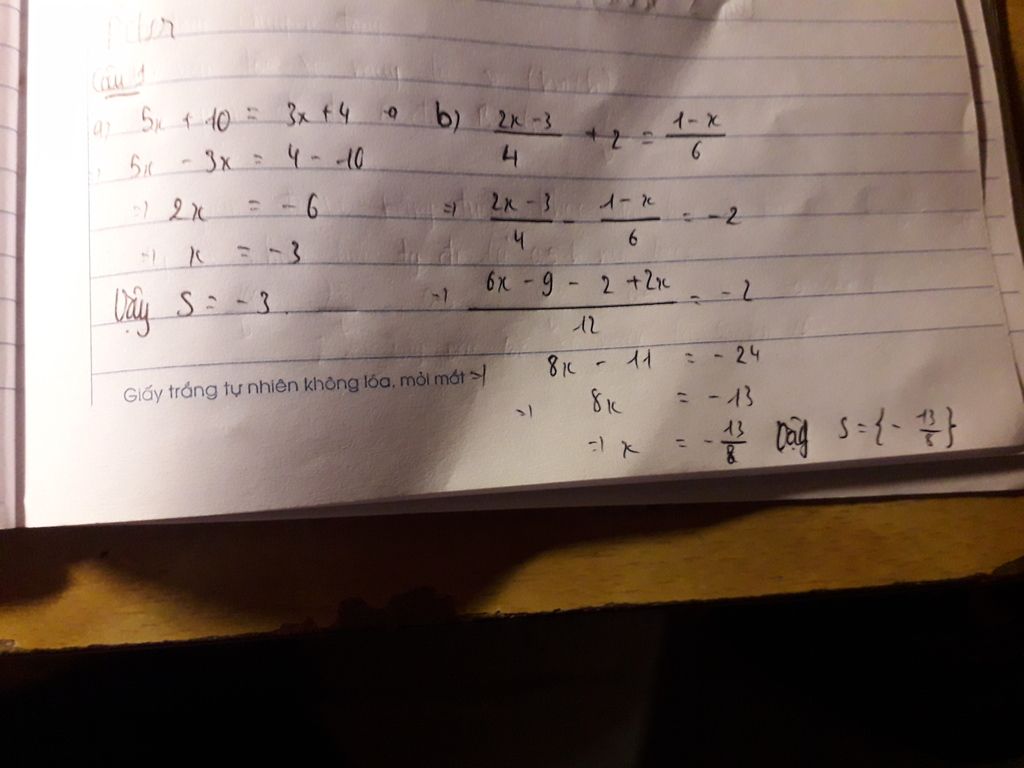 Câu 1
a) 5x + 10 = 3x + 4
5x - 3x = 4 - 10
=> 2x = -6
=> x = -3
Vậy S = -3.
b) \frac{2x-3}{4} + 2 = \frac{1-x}{6}
=> \frac{2x-3}{4} - \frac{1-x}{6} = -2
=> \frac{6x - 9 - 2 + 2x}{12} = -2
=> 8x - 11 = -24
=> 8x = -13
=> x = -\frac{13}{8} Vậy S = {-\frac{13}{8}}
Giấy trắng tự nhiên không lóa, mỏi mắt